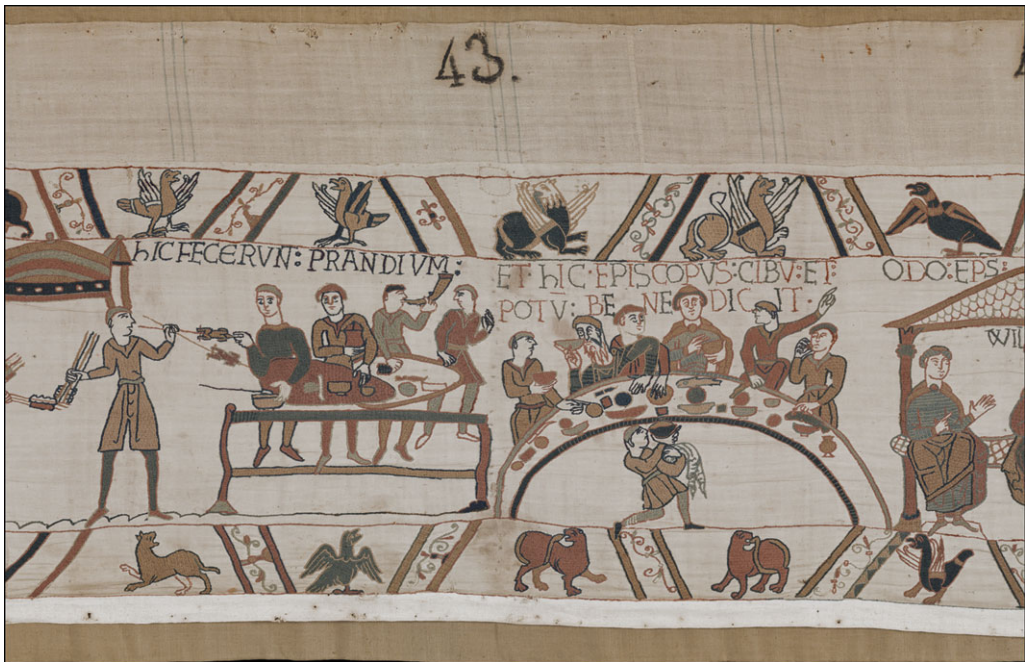 43.
hIC FECERVN : PRANDIVM :
ET · hIC · EPISCOPVS : CIBV : ET :
POTV : BE NE DIC IT ·
ODO : EPS :
WIL